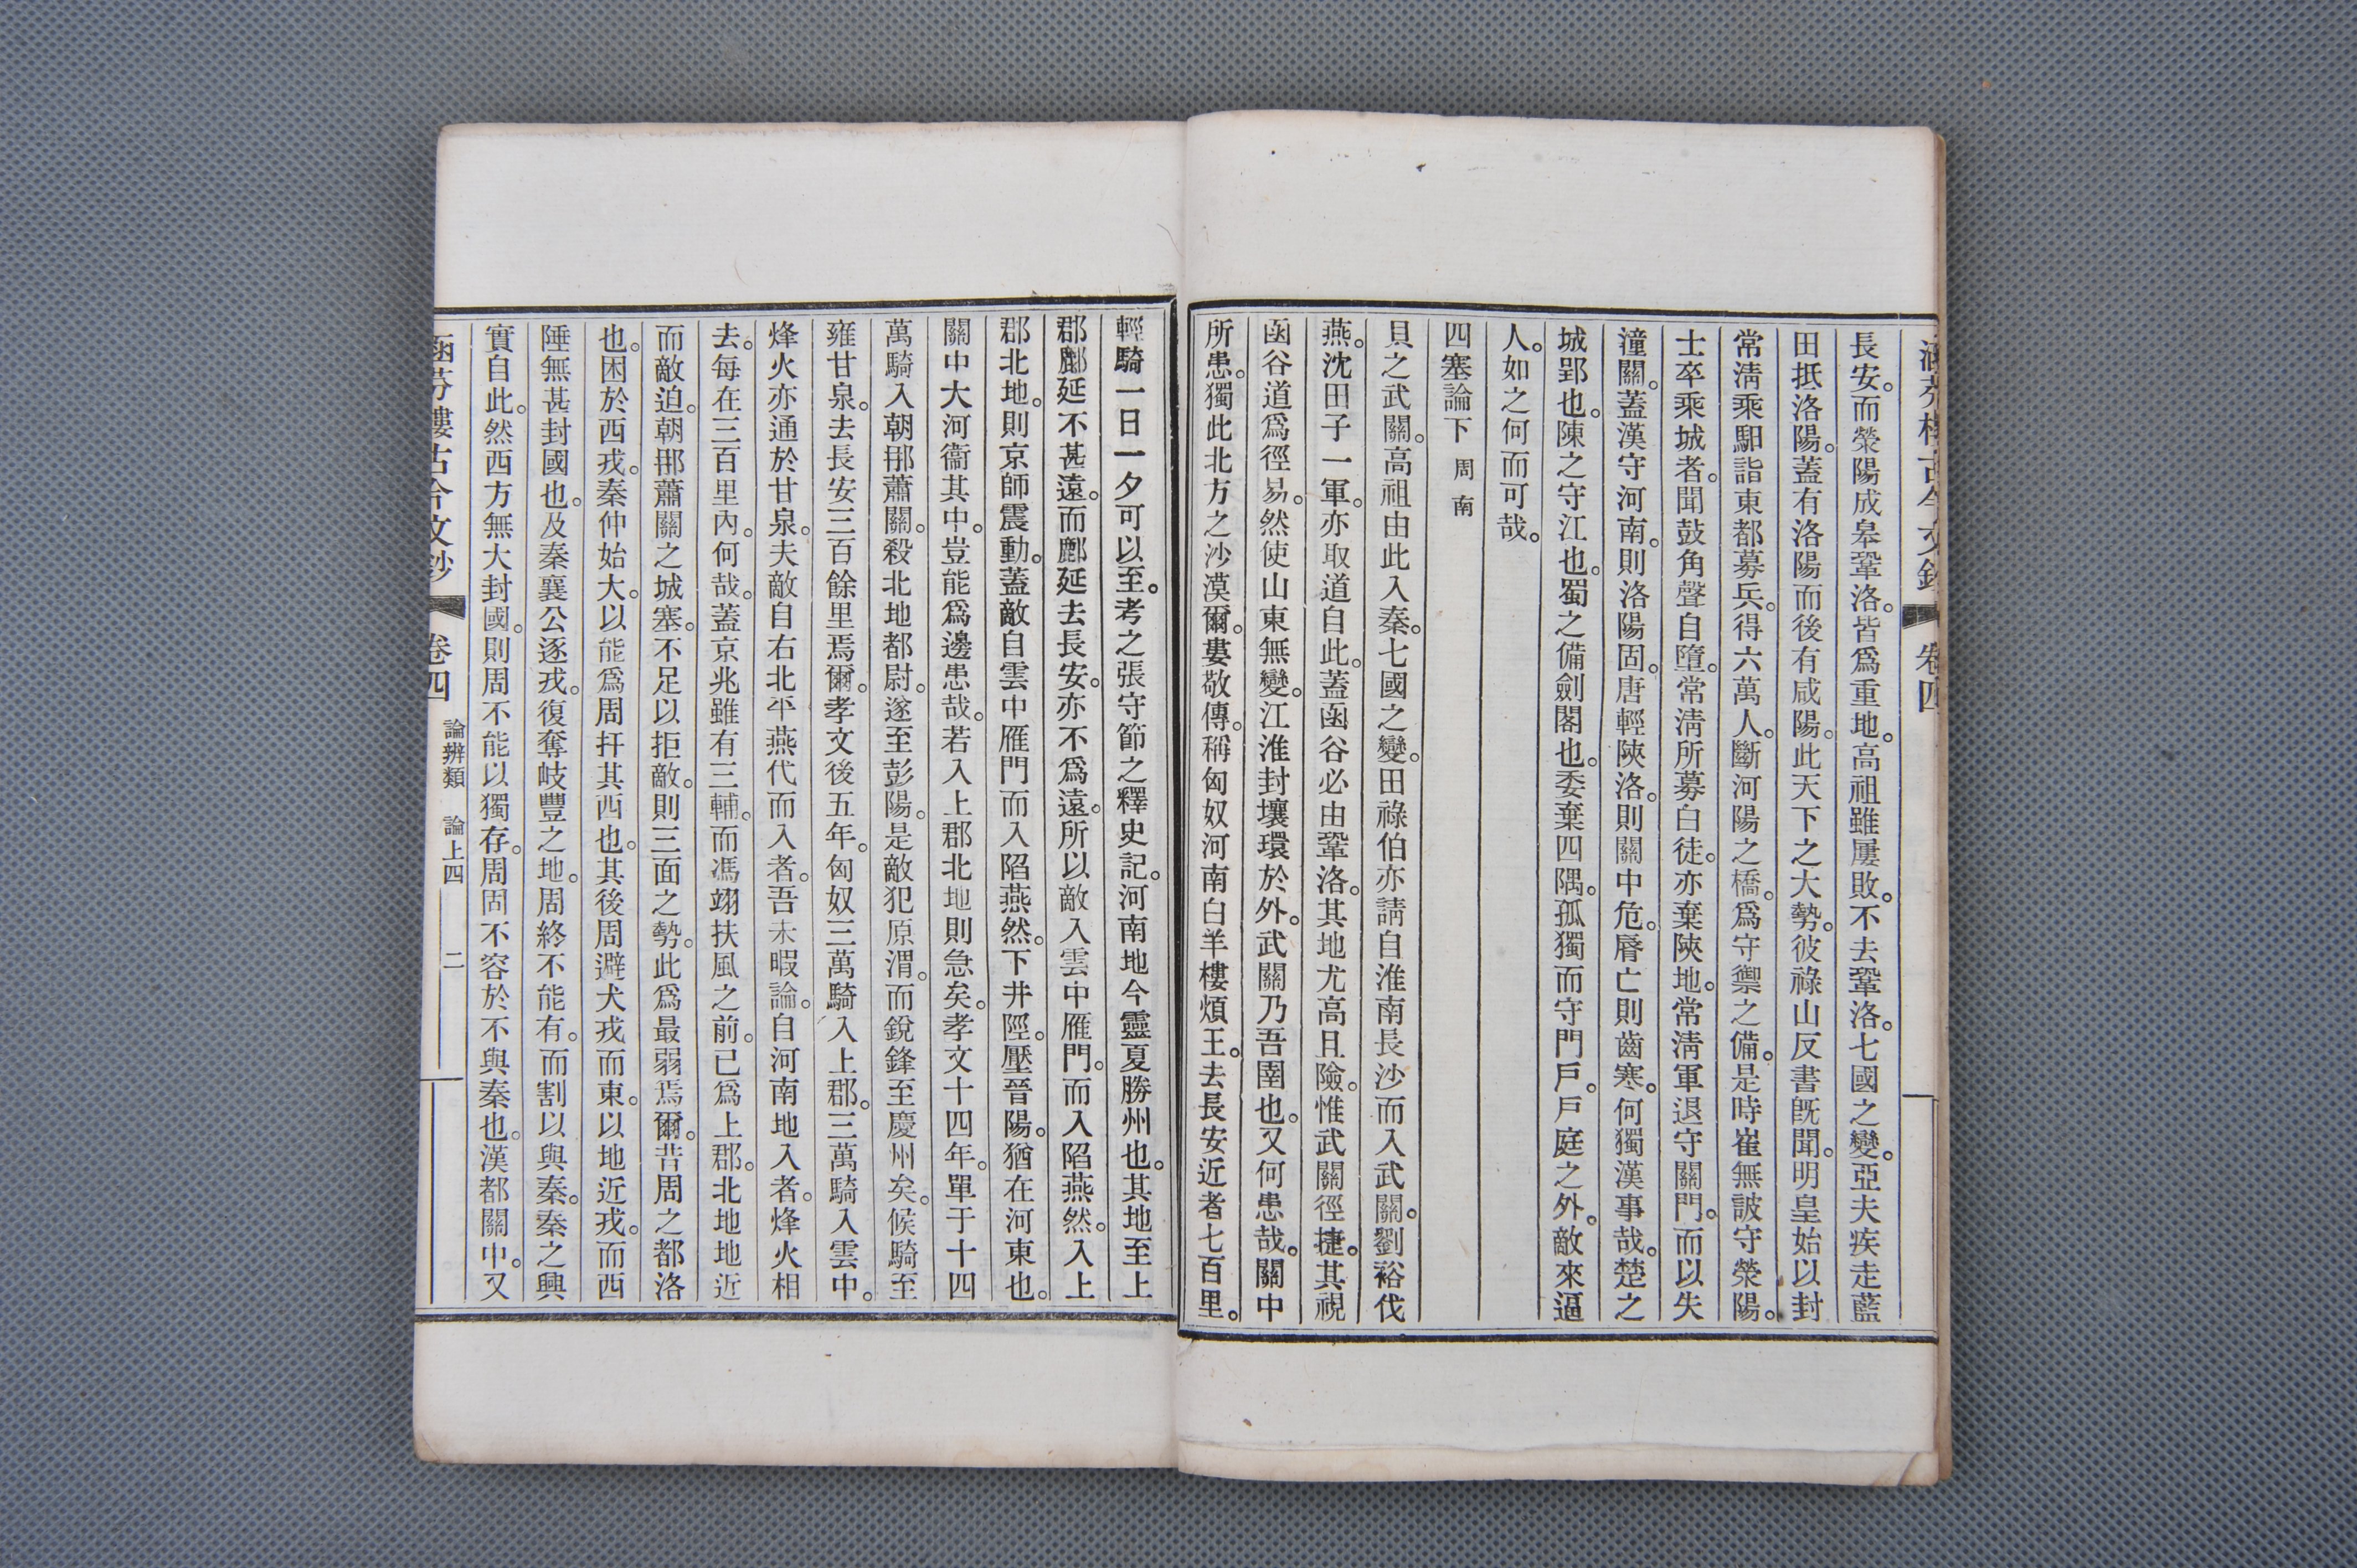 涵芬樓古今文鈔 卷四
長安。而滎陽成皋鞏洛。皆爲重地。高祖雖屢敗。不去鞏洛。七國之變。亞夫疾走藍
田抵洛陽。蓋有洛陽而後有咸陽。此天下之大勢。彼祿山反書旣聞。明皇始以封
常淸乘馹詣東都募兵。得六萬人。斷河陽之橋。爲守禦之備。是時崔無詖守滎陽。
士卒乘城者。聞鼓角聲自墮。常淸所募白徒。亦棄陝地。常淸軍退守關門。而以失
潼關。蓋漢守河南。則洛陽固。唐輕陝洛。則關中危。脣亡則齒寒。何獨漢事哉。楚之
城郢也。陳之守江也。蜀之備劍閣也。委棄四隅。孤獨而守門戶。戶庭之外。敵來逼
人。如之何而可哉。
四塞論下 周南
貝之武關。高祖由此入秦。七國之變。田祿伯亦請自淮南長沙而入武關。劉裕伐
燕。沈田子一軍。亦取道自此。蓋函谷必由鞏洛。其地尤高且險。惟武關徑捷。其視
函谷道爲徑易。然使山東無變。江淮封壤環於外。武關乃吾圉也。又何患哉。關中
所患。獨此北方之沙漠爾。婁敬傳。稱匈奴河南白羊樓煩王。去長安近者七百里。
輕騎一日一夕可以至。考之張守節之釋史記。河南地今靈夏勝州也。其地至上
郡鄜延不甚遠。而鄜延去長安。亦不爲遠。所以敵入雲中雁門。而入陷燕然。入上
郡北地。則京師震動。蓋敵自雲中雁門而入陷燕然。下井陘。壓晉陽。猶在河東也。
關中大河衞其中。豈能爲邊患哉。若入上郡北地則急矣。孝文十四年。單于十四
萬騎入朝𨙻蕭關。殺北地都尉。遂至彭陽。是敵犯原渭。而銳鋒至慶州矣。候騎至
雍甘泉。去長安三百餘里焉爾。孝文後五年。匈奴三萬騎入上郡。三萬騎入雲中。
烽火亦通於甘泉。夫敵自右北平燕代而入者。吾未暇論。自河南地入者。烽火相
去。每在三百里內。何哉。蓋京兆雖有三輔。而馮翊扶風之前。已爲上郡。北地地近
而敵迫。朝𨙻蕭關之城塞。不足以拒敵。則三面之勢。此爲最弱焉爾。昔周之都洛
也。困於西戎。秦仲始大。以能爲周扞其西也。其後周避犬戎而東。以地近戎。而西
陲無甚封國也。及秦襄公逐戎。復奪岐豐之地。周終不能有。而割以與秦。秦之興
實自此。然西方無大封國。則周不能以獨存。周固不容於不與秦也。漢都關中。又
涵芬樓古今文鈔 卷四 論辨類 論上四 二